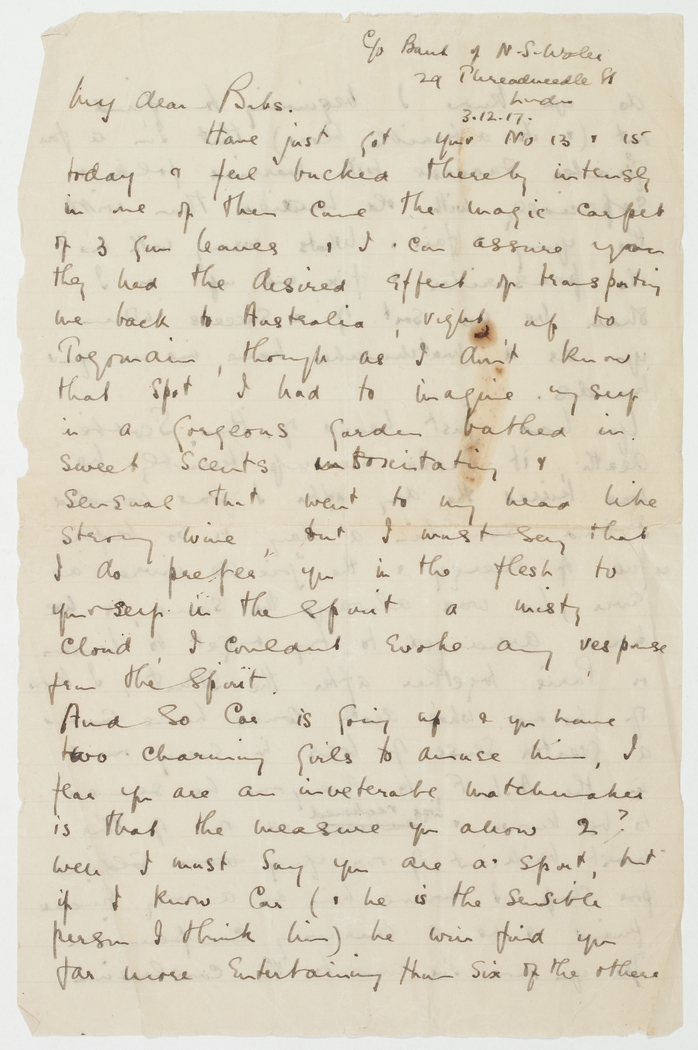 C/o Bank of N.S. Wales
29 Threadneedle St
London
3.12.17.
My dear Bibs.
Have just got your No 13 & 15
today & feel bucked thereby intensely
in one of them came the magic carpet
of 3 gum leaves & I can assure you
they had the desired effect of transporting
me back to Australia, right up to
, though as I don't know
that spot I had to imagine myself
in a gorgeous garden bathed in
sweet scents intoxicating &
sensual that went to my head like
strong wine, but I must say that
I do prefer you in the flesh to
yourself in the spirit a misty
cloud, I couldn't evoke any response
from the spirit.
And so Car is going up & you have
two charming girls to amuse him, I
fear you are an inveterate matchmaker
is that the measure you allow 2?
well I must say you are a sport, but
if I know Car (& he is the sensible
person I think him) he will find you
far more entertaining than six of the others